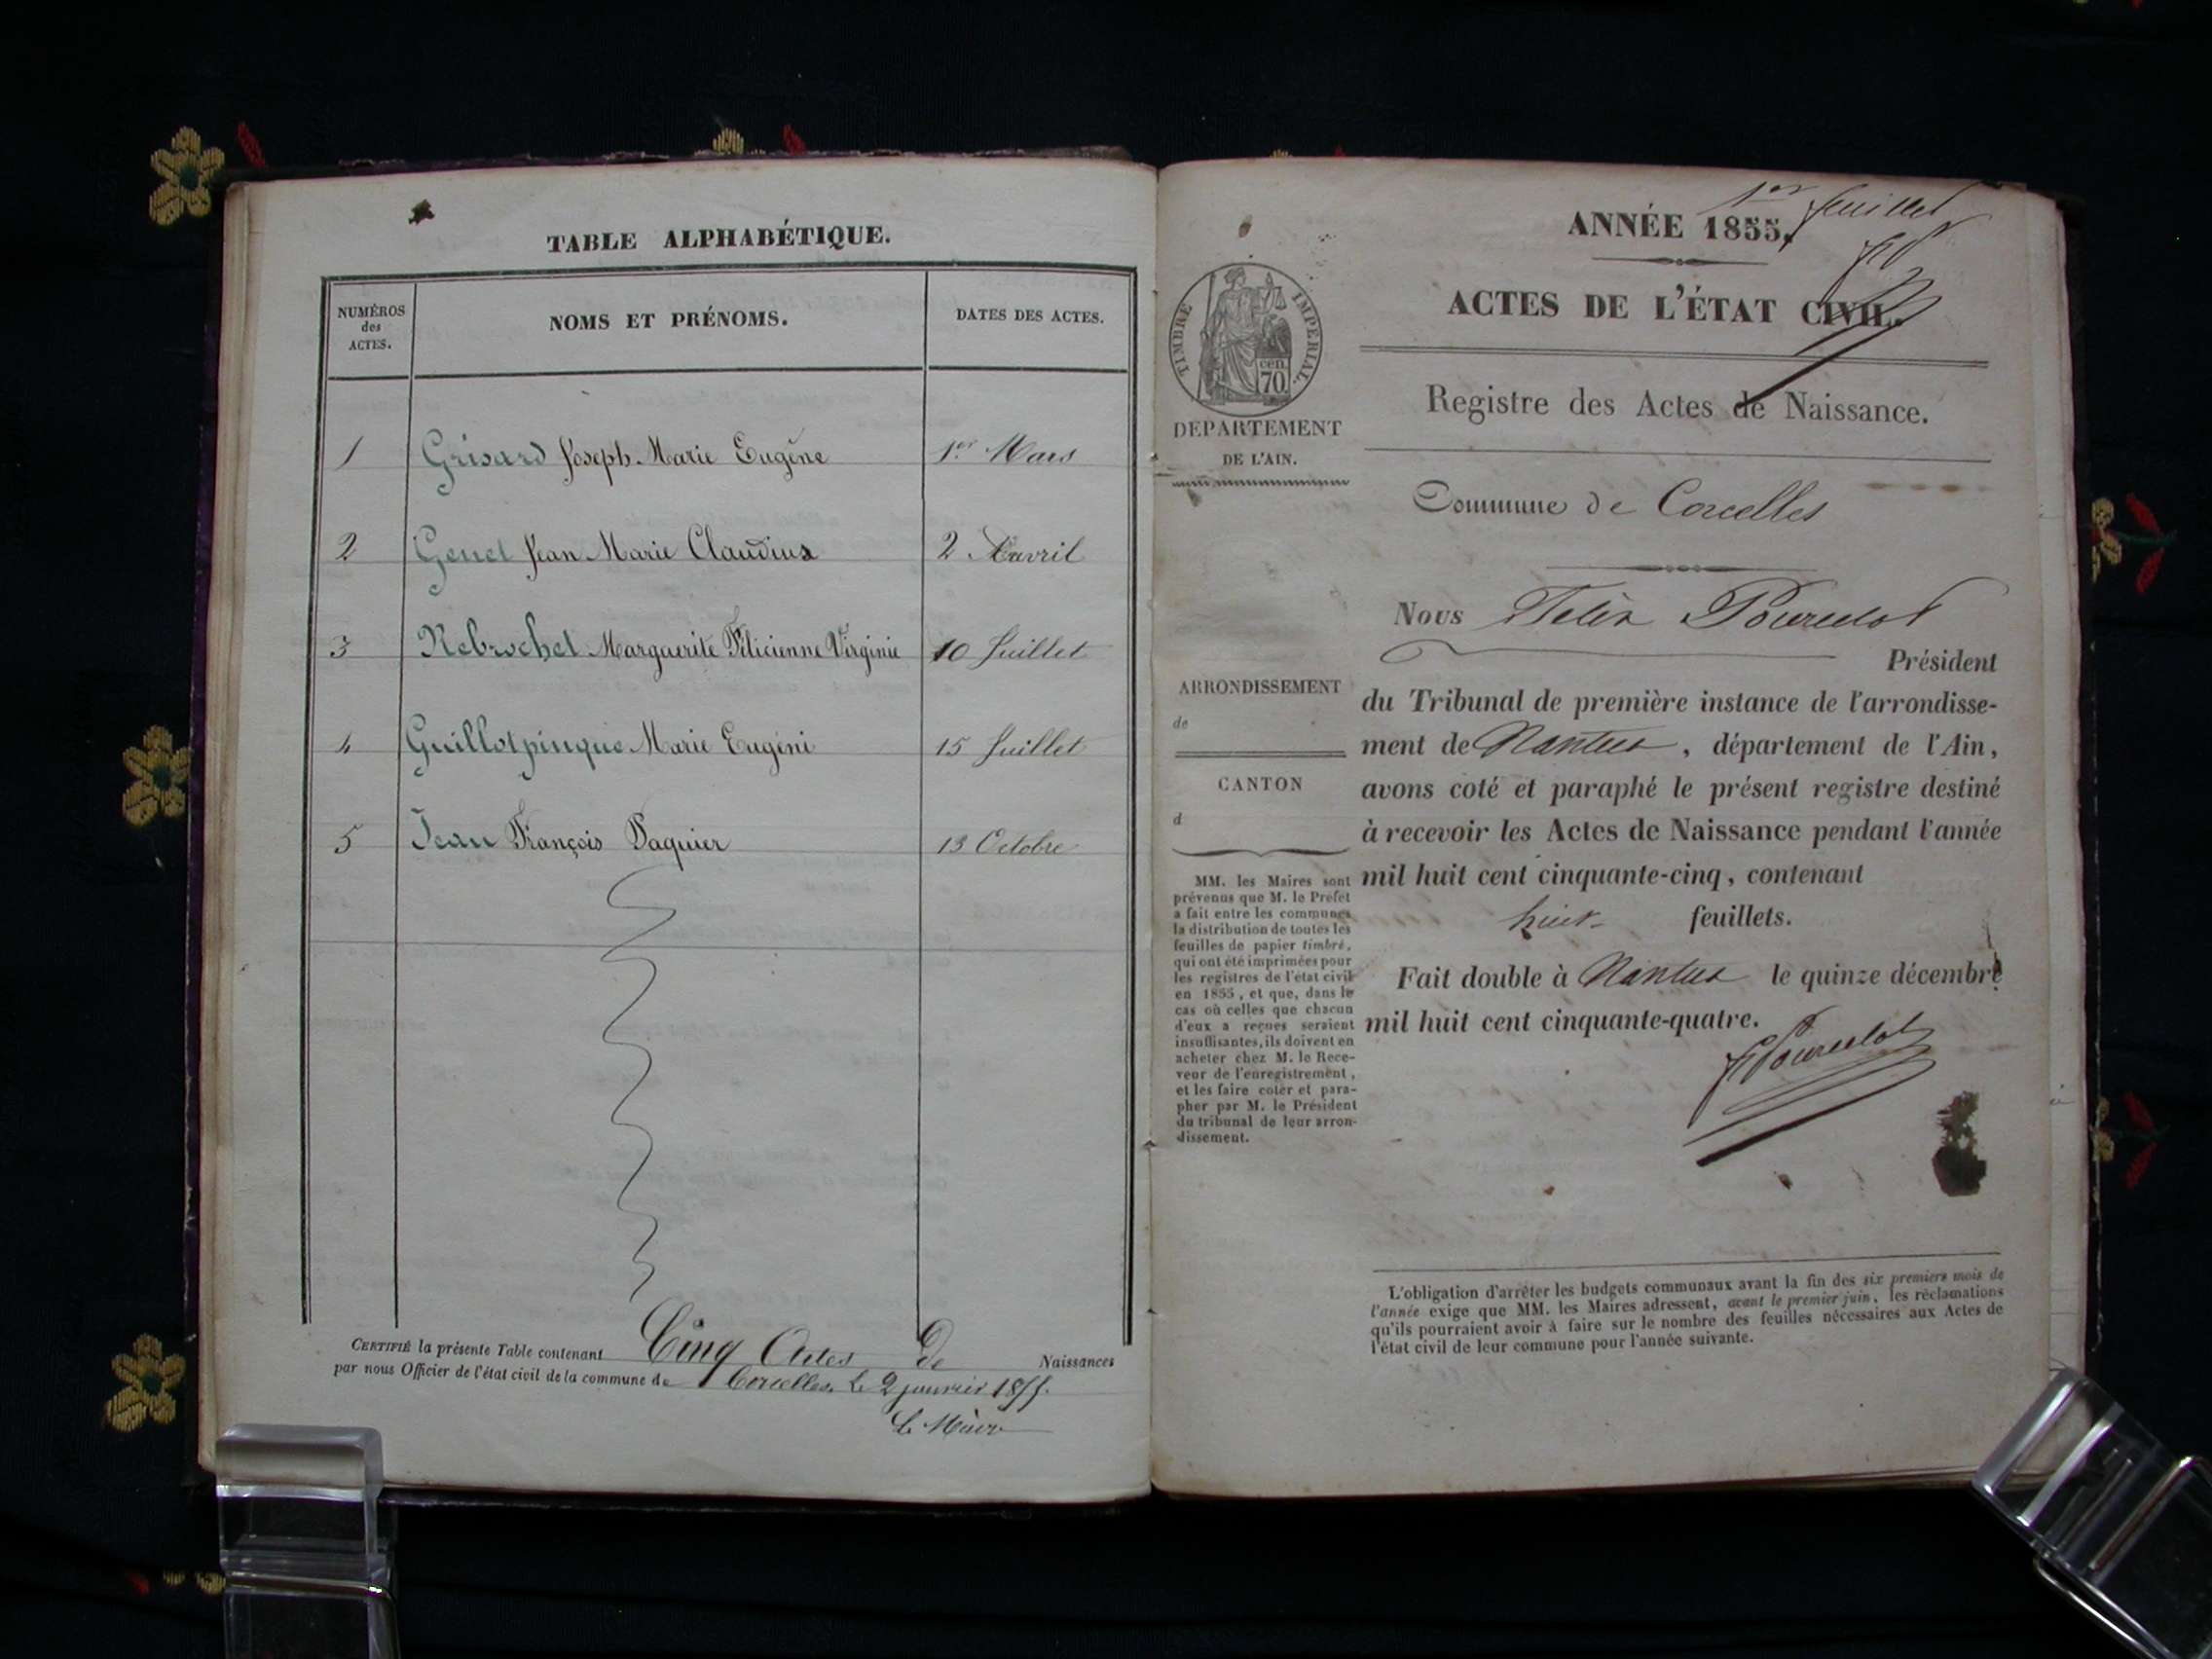 TABLE ALPHABÉTIQUE.
NUMÉROS
des
ACTES.
NOMS ET PRÉNOMS.
DATES DES ACTES.
1 Grisard Joseph Marie Eugène 1er Mars
2 Genet Jean Marie Claudius 2 Avril
3 Rebrochet Marguerite Félicienne Virginie 10 Juillet
4 Guillotpinque Marie Eugéni 15 Juillet
5 Jean François Paquier 13 Octobre
CERTIFIÉ la présente Table contenant Cinq Actes De Naissances
par nous Officier de l'état civil de la commune de Corcelles. Le 2 janvier 1855.
Le Maire
1er feuillet
ANNÉE 1855.
ACTES DE L'ÉTAT CIVIL.
Registre des Actes de Naissance.
TIMBRE IMPÉRIAL.
cen.
70
DÉPARTEMENT
DE L'AIN.
Commune de Corcelles
Nous Félix Pourcelot
Président
du Tribunal de première instance de l'arrondisse-
ment de Nantua, département de l'Ain,
avons coté et paraphé le présent registre destiné
à recevoir les Actes de Naissance pendant l'année
mil huit cent cinquante-cinq, contenant
huit feuillets.
Fait double à Nantua le quinze décembre
mil huit cent cinquante-quatre.
F Pourcelot
ARRONDISSEMENT
de
CANTON
d
MM. les Maires sont
prévenus que M. le Préfet
a fait entre les communes
la distribution de toutes les
feuilles de papier timbré,
qui ont été imprimées pour
les registres de l'état civil
en 1855, et que, dans le
cas où celles que chacun
d'eux a reçues seraient
insuffisantes, ils doivent en
acheter chez M. le Rece-
veur de l'enregistrement,
et les faire coter et para-
pher par M. le Président
du tribunal de leur arron-
dissement.
L'obligation d'arrêter les budgets communaux avant la fin des six premiers mois de
l'année exige que MM. les Maires adressent, avant le premier juin, les réclamations
qu'ils pourraient avoir à faire sur le nombre des feuilles nécessaires aux Actes de
l'état civil de leur commune pour l'année suivante.